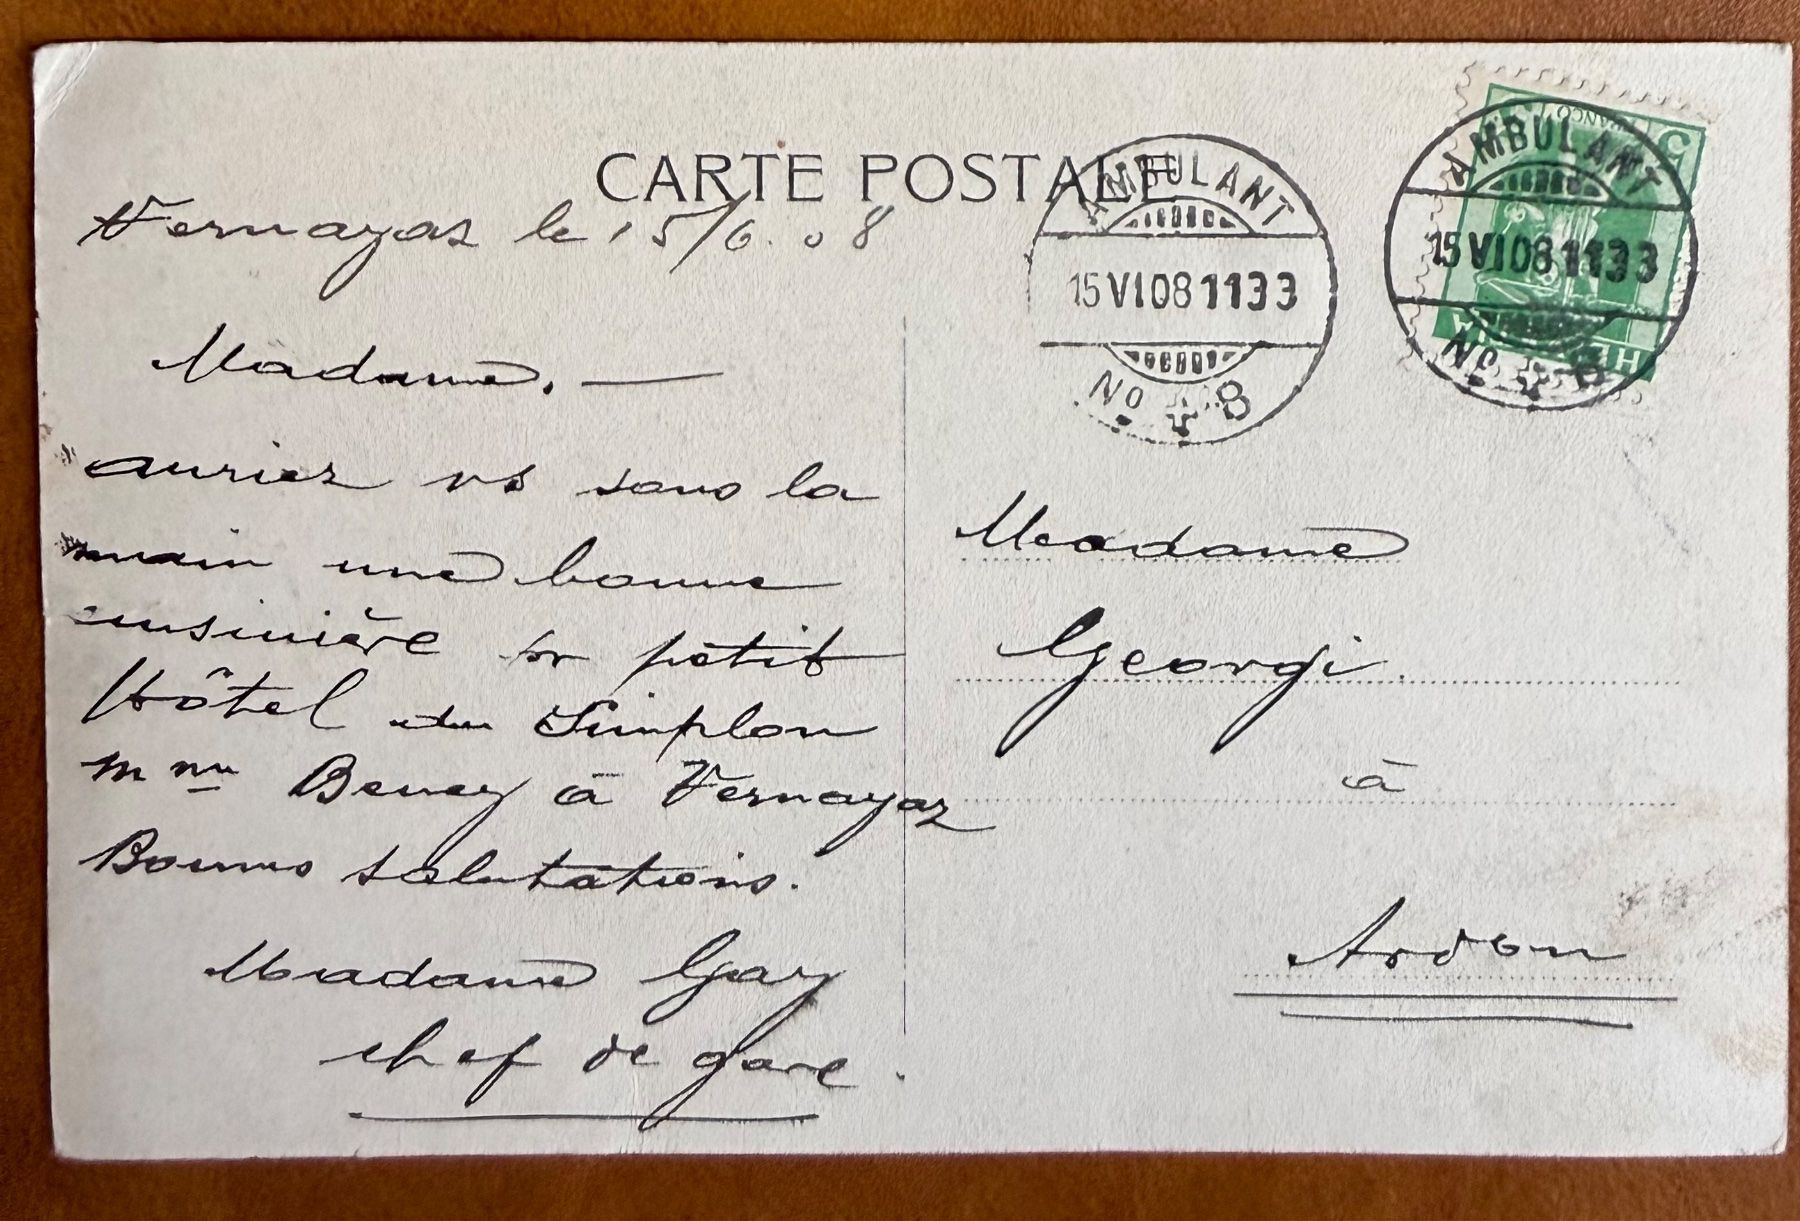 CARTE POSTALE
Vernayaz le 15/6.08
Madame. —
auriez vs sous la
main une bonne
cuisinière pr petit
Hôtel du Simplon
Mme Benez à Vernayaz
Bonnes salutations.
Madame Gay
chef de gare.
AMBULANT
15 VI 08 1133
No 8
AMBULANT
15 VI 08 1133
No 8
FRANCO
5
Madame
Georgi.
à
Ardon